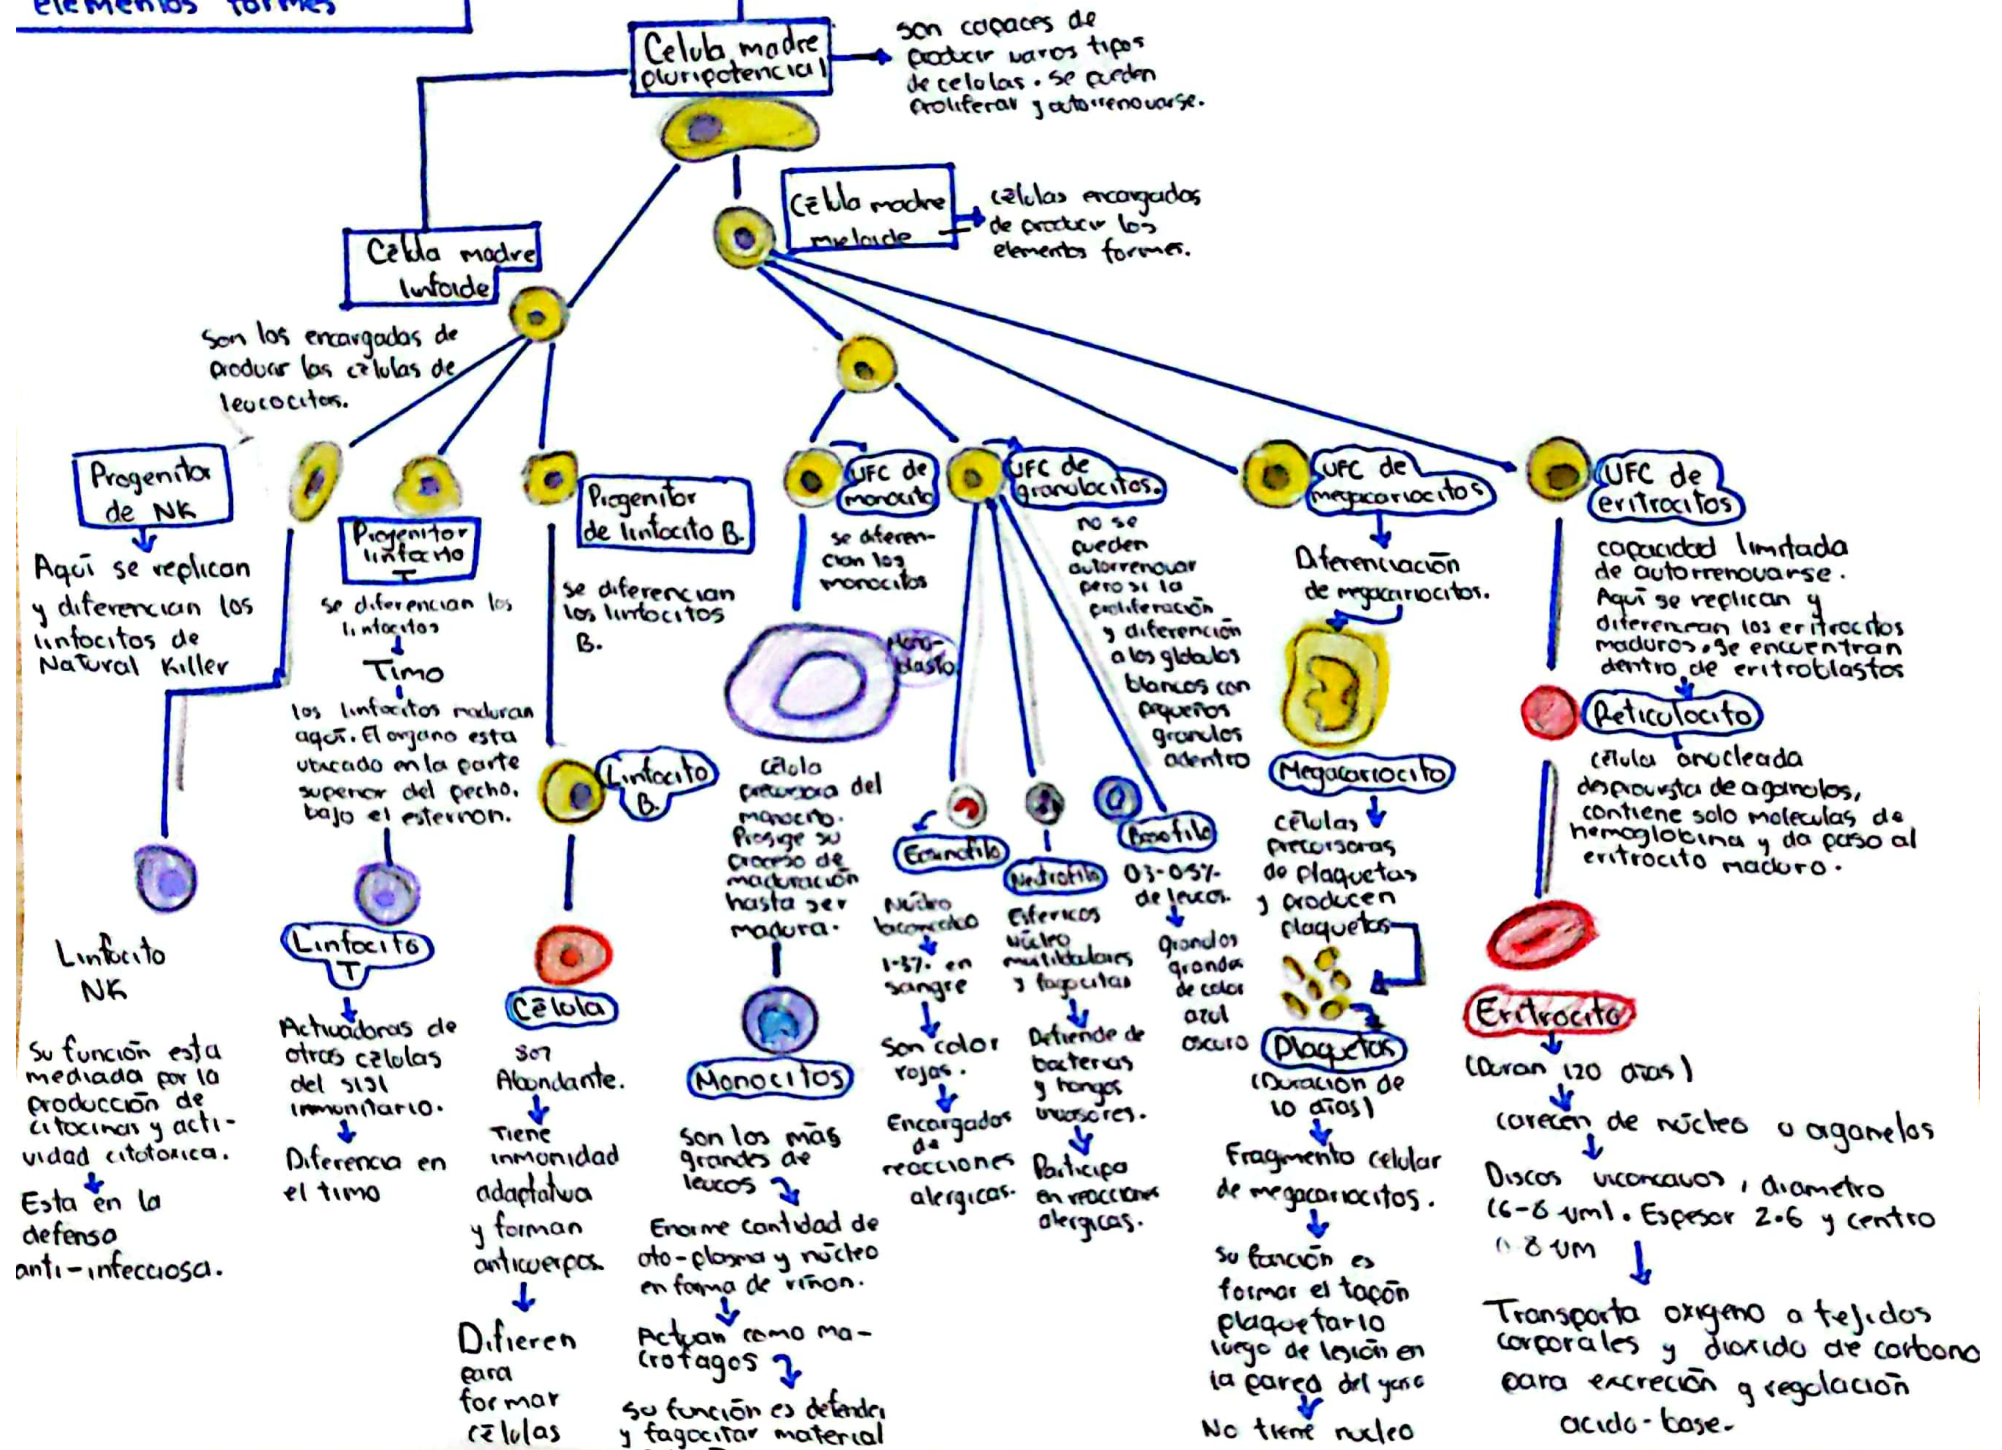 elementos formes
Celula madre
pluripotencial
son capaces de
producir varos tipos
de celulas. Se pueden
proliferar y autorrenovarse.
Célula madre
mieloide
células encargados
de producir los
elementos formes.
Célula madre
linfoide
Son los encargados de
producir las células de
leucocitos.
Progenitor
de NK
Aquí se replican
y diferencian los
linfocitos de
Natural Killer
Linfocito
NK
Su función esta
mediada por la
producción de
citocinas y acti-
vidad citotoxica.
Esta en la
defensa
anti-infecciosa.
Progenitor
linfocito
T
se diferencian los
linfocitos
Timo
los linfocitos maduran
aquí. El organo esta
ubicado en la parte
superior del pecho,
bajo el esternon.
Linfocito
T
Activadoras de
otras células
del sist
inmunitario.
Diferencia en
el timo
Progenitor
de linfocito B.
se diferencian
los linfocitos
B.
Linfocito
B.
Célula
Son
Abondante.
Tiene
inmonidad
adaptativa
y forman
anticuerpos.
Difieren
para
formar
células
UFC de
monocito
se diferen-
cian los
monocitos
Mono-
blasto
célula
precursora del
monocito.
Prosige su
proceso de
maduración
hasta ser
madura.
Monocitos
son los más
grandes de
leucos
Enorme cantidad de
cito-plasma y núcleo
en forma de riñon.
Actuan como ma-
crofagos
su función es defender
y fagocitar material
UFC de
granulocitos.
no se
pueden
autorrenovar
pero si la
proliferación
y diferención
a los globulos
blancos con
pequeños
granulos
adentro
Eosinofilo
Núcleo
1-3% en
sangre
Son color
rojas.
Encargados
de
reacciones
alergicas.
Neutrofilo
Esfericos
núcleo
multilobulares
y fagocitas
Defiende de
bacterias
y hongos
invasores.
Participa
en reacciones
alergicas.
Basofilo
0.3-0.5%
de leucos.
granulos
grandes
de color
azul
oscuro
UFC de
megacariocitos
Diferenciación
de megacariocitos.
Megacariocito
células
precursoras
de plaquetas
y producen
plaquetas
Plaquetas
(Duración de
10 días)
Fragmento celular
de megacariocitos.
Su función es
formar el tapón
plaquetario
luego de lesión en
la pared del
No tiene nucleo
UFC de
eritrocitos
capacidad limitada
de autorrenovarse.
Aquí se replican y
diferencean los eritrocitos
maduros. Se encuentran
dentro de eritroblastos
Reticulocito
célula anocleada
desprovista de organolos,
contiene solo moleculas de
hemoglobina y da paso al
eritrocito maduro.
Eritrocito
(Duran 120 días)
carecen de núcleo u organelos
Discos viconcavos, diametro
(6-8 um). Espesor 2.6 y centro
8 um
Transporta oxigeno a tejidos
corporales y dioxido de carbono
para excreción y regolación
acido-base.